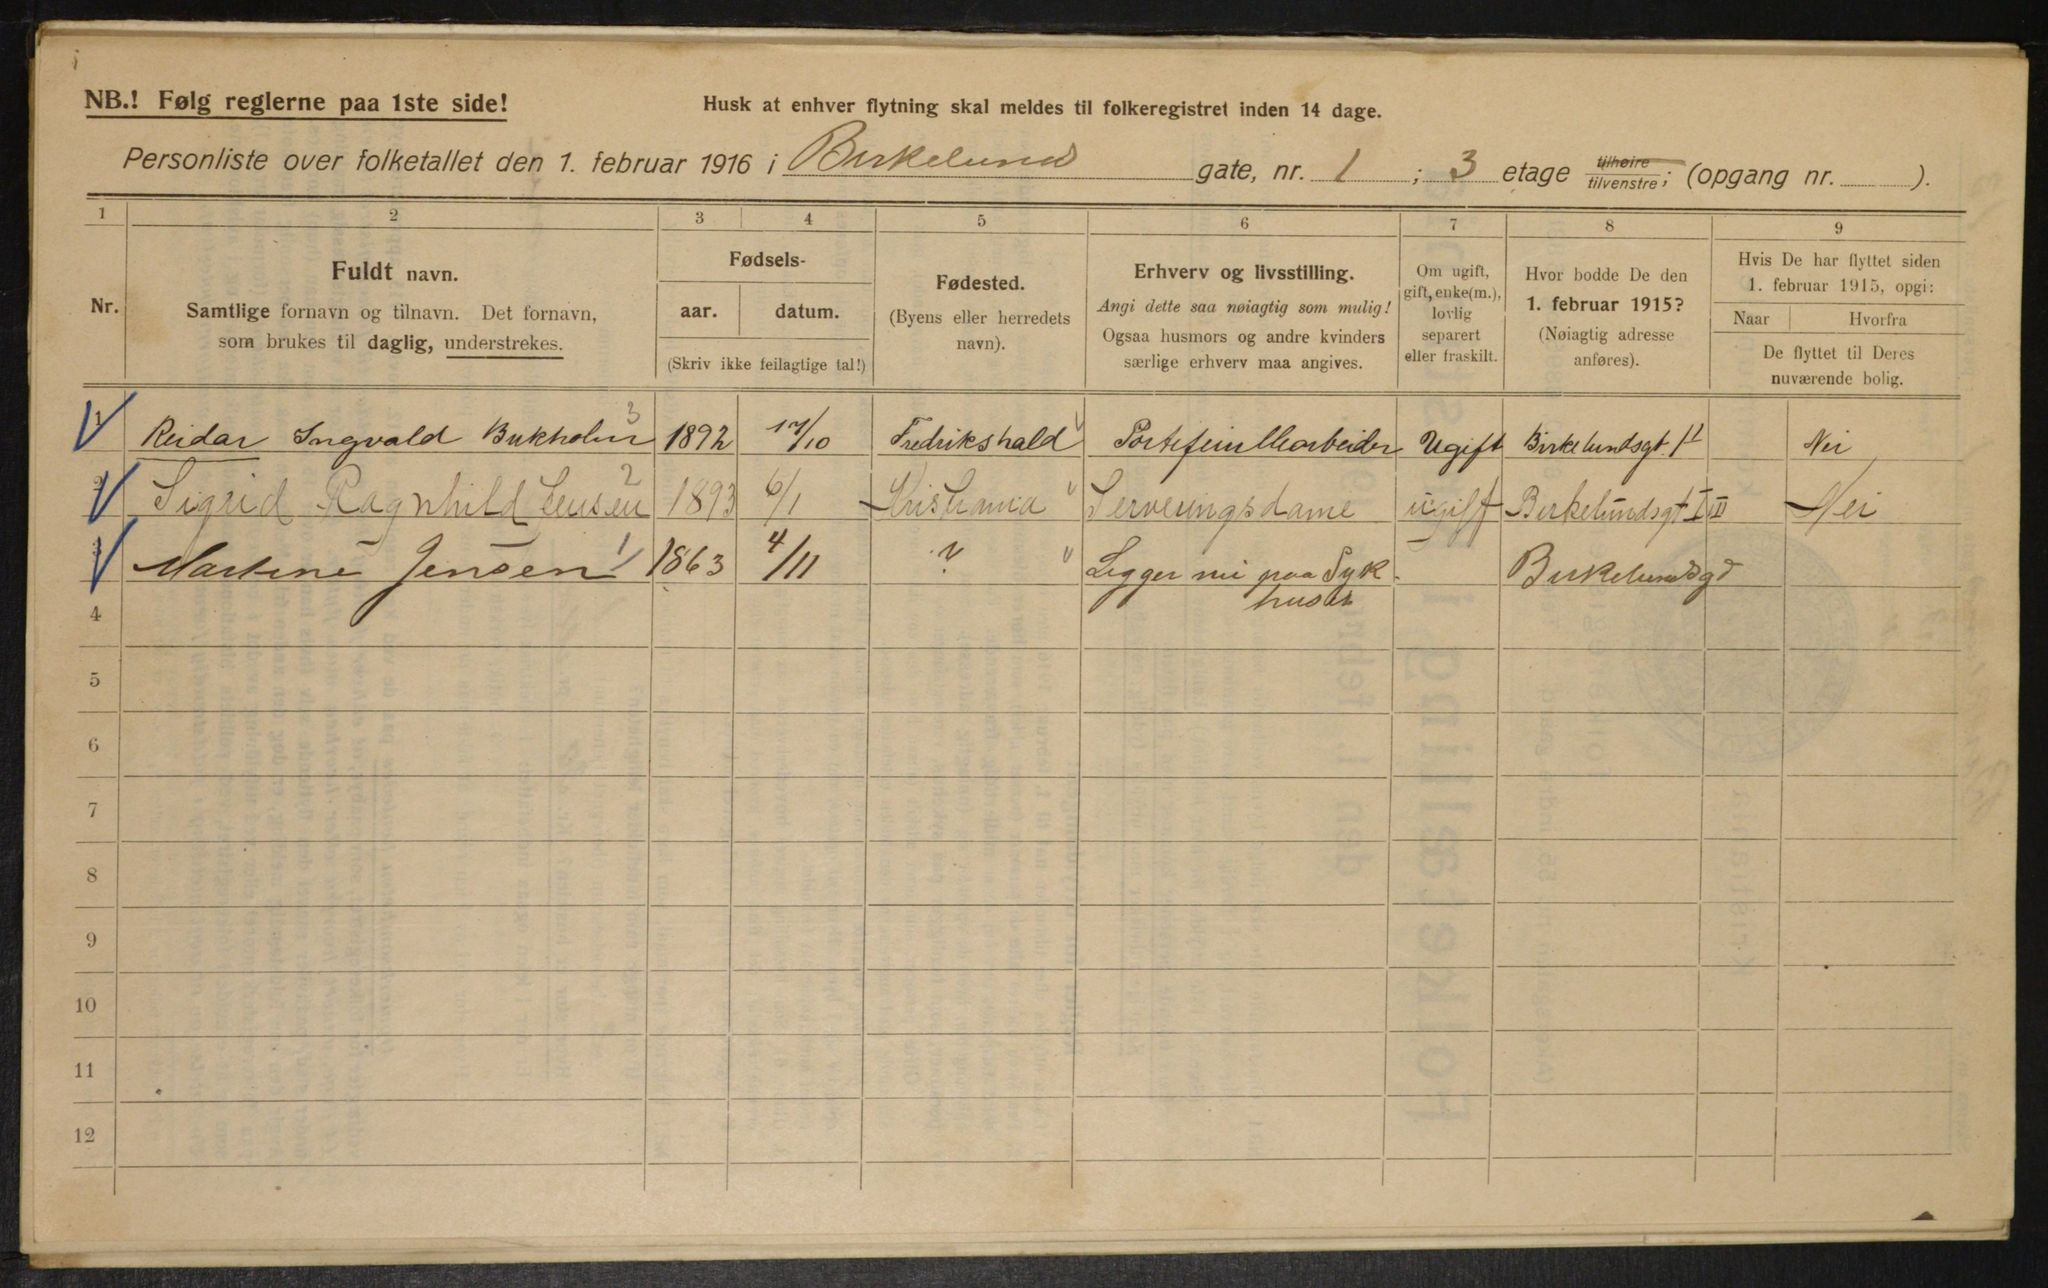 NB.! Følg reglerne paa 1ste side!
Husk at enhver flytning skal meldes til folkeregistret inden 14 dage.
Personliste over folketallet den 1. februar 1916 i Birkelund gate, nr. 1 ; 3 etage tilhøire tilvenstre; (opgang nr. ).
1 2 3 4 5 6 7 8 9
Nr.
Fuldt navn.
Samtlige fornavn og tilnavn. Det fornavn,
som brukes til daglig, understrekes.
Fødsels-
aar. datum.
(Skriv ikke feilagtige tal!)
Fødested.
(Byens eller herredets
navn).
Erhverv og livsstilling.
Angi dette saa nøiagtig som mulig!
Ogsaa husmors og andre kvinders
særlige erhverv maa angives.
Om ugift,
gift, enke(m.),
lovlig
separert
eller fraskilt.
Hvor bodde De den
1. februar 1915?
(Nøiagtig adresse
anføres).
Hvis De har flyttet siden
1. februar 1915, opgi:
Naar Hvorfra
De flyttet til Deres
nuværende bolig.
1 Reidar Ingvald 3 1892 17/10 Fredrikshald Ugift Birkelundsgt. Nei
2 Sigrid Ragnhild Jensen 2 1893 6/1 Kristiania Serveringsdame ugift Birkelundsgt I III Nei
3 Martine Jensen 1 1863 4/11 ? Ligger nu paa Syk
huset
Birkelundsgd
4
5
6
7
8
9
10
11
12